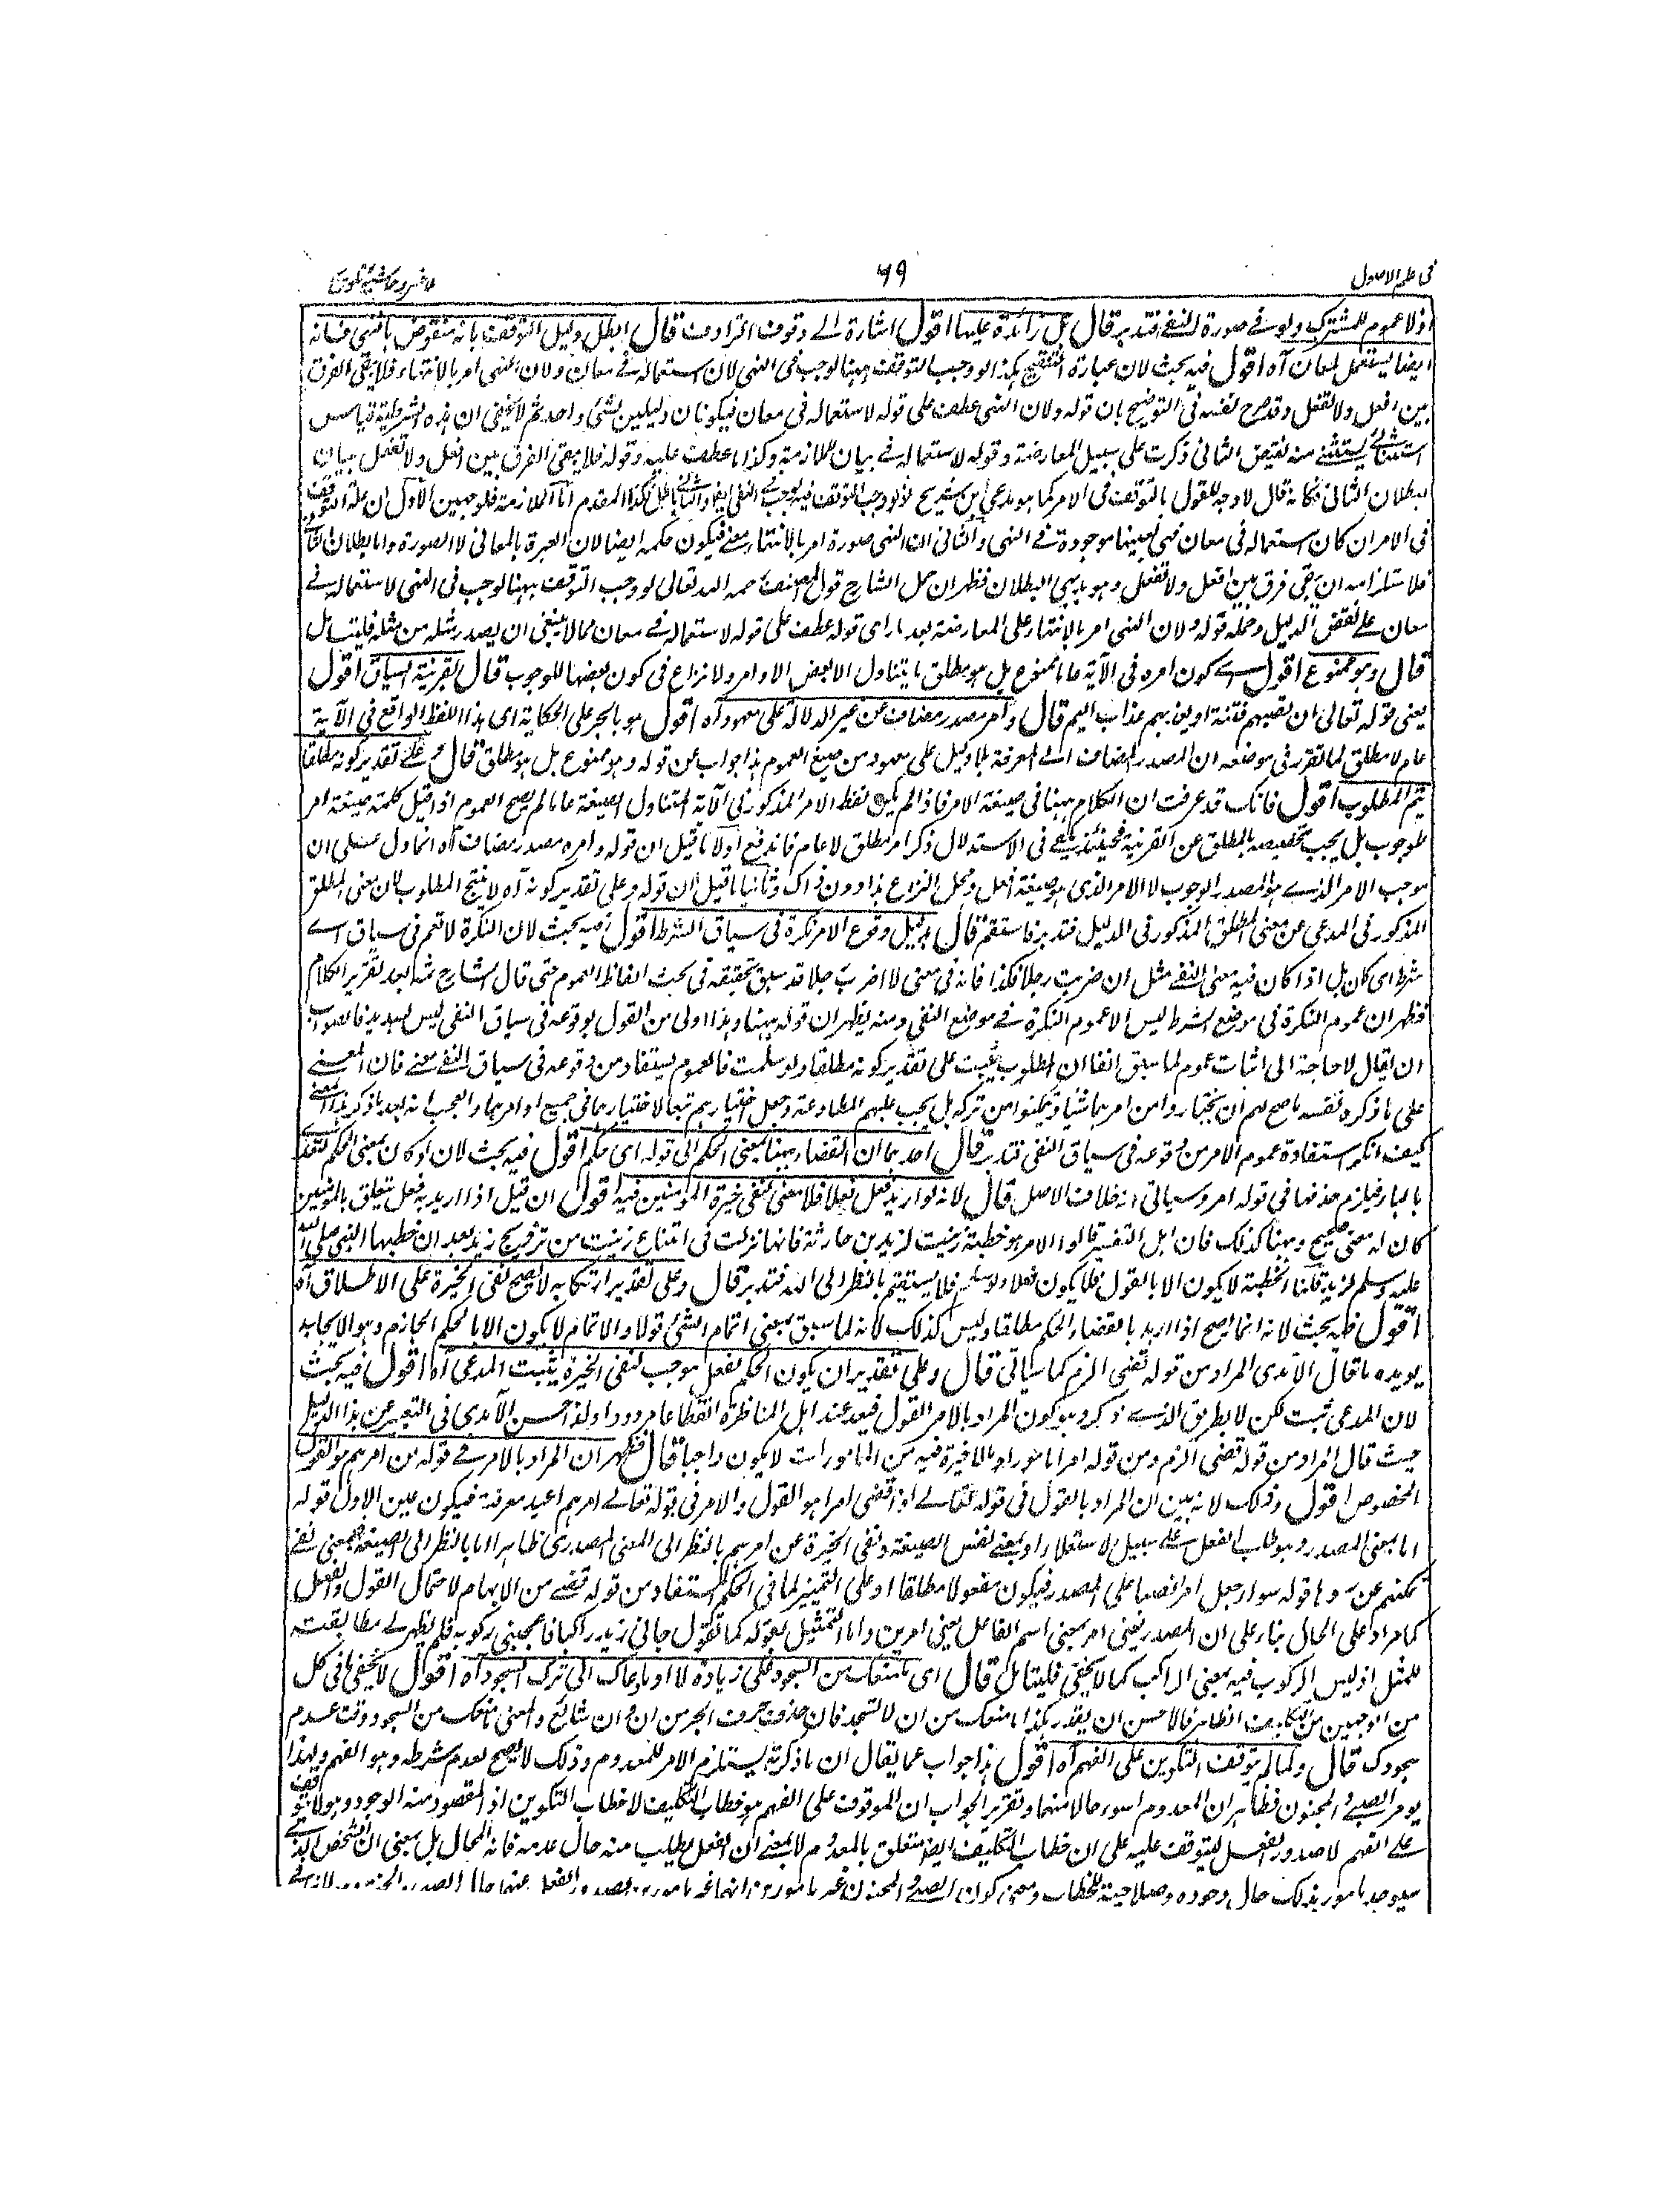 فى علم الاصول
٦٩
ملا خسرو حاشية تلويح
اذ لا عموم للمشترك ولو فى صورة النفى فتدبر قال بل زائدة عليها اقول اشارة الى وقوف الترادف قال ابطل دليل التوقف بانه منقوض بالنهى فانه
ايضا يستعمل لمعان آه اقول فيه بحث لان عبارة التنقيح هكذا لو وجب التوقف ههنا لوجب فى النهى لان استعماله فى معان ولان النهى امر بالانتهاء فلا يبقى الفرق
بين افعل ولا تفعل وقد صرح نفسه فى التوضيح بان قوله ولان النهى عطف على قوله لاستعماله فى معان فيكونان دليلين لشئ واحد ثم لا يخفى ان هذه الشرطية قياس
استثنائى يستثنى منه نقيض الثانى ذكرت على سبيل المعارضة وقوله لاستعماله فى بيان للملازمة وكذا ما عطف عليه وقوله فلا يبقى الفرق بين افعل ولا تفعل بيان
لبطلان الثانى فكانه قال لا وجه للقول بالتوقف فى الامر كما هو مدعى ابن سريج اذ لو وجب التوقف فيه لوجب فى النهى ايضا والتالى باطل فكذا المقدم اما الملازمة فلوجهين الاول ان علة التوقف
فى الامر ان كان استعماله فى معان فهى بعينها موجودة فى النهى والثانى ان النهى صورة امر بالانتهاء معنى فيكون حكمه ايضا لان العبرة بالمعانى لا الصورة واما بطلان التالى
فلاستلزامه ان يبقى فرق بين افعل ولا تفعل وهو بديهى البطلان فظهر ان حمل الشارح قول المصنف رحمه الله تعالى لو وجب التوقف ههنا لوجب فى النهى لاستعماله فى
معان على نقض الدليل وحمله قوله ولان النهى امر بالانتهاء على المعارضة بعد ما رأى قوله عطف على قوله لاستعماله فى معان مما لا ينبغى ان يصدر مثله من مثله فليتأمل
قال وهو ممنوع اقول اى كون امره فى الآية عاما ممنوع بل هو مطلق ما يتناول الا بعض الاوامر ولا نزاع فى كون بعضها للوجوب قال بقرينة السياق اقول
يعنى قوله تعالى ان تصيبهم فتنة او يصيبهم عذاب اليم قال وامر مصدر مضاف من غير الدلالة على معهود آه اقول هو بالجر على الحكاية اى هذا اللفظ الواقع فى الآية
عام لا مطلق لما تقرر فى موضعه ان المصدر المضاف الى المعرفة بلا دليل على معهود من صيغ العموم هذا جواب عن قوله وهو ممنوع بل هو مطلق قال على تقدير كونه مطلقا
يتم المطلوب اقول فانك قد عرفت ان الكلام ههنا فى صيغة الامر فاذا لم يكن لفظ الامر المذكور فى الآية المتناول الصيغة عاما لم يصح العموم اذ اقيل كلمة صيغة امر
للوجوب بل يجب تخصيصه بالمطلق عن القرينة فحينئذ يكفى فى الاستدلال ذكر امر مطلق لا عام فاندفع اولا ما قيل ان قوله وامره مصدر مضاف آه انما دل على ان
موجب الامر الذى هو المصدر الوجوب لا الامر الذى هو صيغة افعل ومحل النزاع هذا دون ذاك وثانيا ما قيل ان قوله وعلى تقدير كونه آه لا ينتج المطلوب لان معنى المطلق
المذكور فى المدعى من معنى المطلق المذكور فى الدليل فتدبر فاستقم قال بدليل وقوع الامر نكرة فى سياق الشرط اقول فيه بحث لان النكرة لا تعم فى سياق اى
شرط اى كان بل اذا كان فيه معنى النفى مثل ان ضربت رجلا فكذا فانه فى معنى لا اضرب رجلا قد سبق تحقيقه فى بحث الفاظ العموم حتى قال الشارح ثمه بعد تقرير الكلام
فظهر ان عموم النكرة فى موضع الشرط ليس الا عموم النكرة فى موضع النفى ومنه يظهر ان قوله ههنا وهذا اولى من القول بوقوعه فى سياق النفى ليس بسديد فالصواب
ان يقال لا حاجة الى اثبات عموم لما سبق انفا ان المطلوب يثبت على تقدير كونه مطلقا ولو سلمت فالعموم يستفاد من وقوعه فى سياق النفى معنى فان المعنى
على ما ذكره نفسه ما صح لهم ان يختاروا من امرهما شيئا ويتمكنوا من تركه بل يجب عليهم المطاوعة وجعل اختيارهم تبعا لاختيارهما فى جميع اوامرهما والعجب انه بعد ما ذكر هذا المعنى
كيف انكر استفادة عموم الامر من وقوعه فى سياق النفى فتدبر قال احدهما ان القضاء ههنا بمعنى الحكم الى قوله اى حكم اقول فيه بحث لان لو كان بمعنى الحكم لتعدى
بالباء فيلزم حذفها فى قوله امر وسيأتى انه خلاف الاصل قال لانه لو اريد فعل فعلا فلا معنى لنفى خيرة المؤمنين فيه اقول ان قيل اذا اريد به فعل يتعلق بالمؤمنين
كان له معنى صحيح وههنا كذلك فان اهل التفسير قالوا الامر هو خطبة زينب لزيد بن حارثة فانها نزلت فى امتناع زينب من تزويج زيد بعد ان خطبها النبى صلى الله
عليه وسلم لزيد قلنا الخطبة لا يكون الا بالقول فلا يكون فعلا ولو سلم فلا يستقيم بالنظر الى الله فتدبر قال وعلى تقدير ارتكابه لا يصح نفى الخيرة على الاطلاق آه
اقول فيه بحث لانه انما يصح اذا اريد بالقضاء الحكم مطلقا وليس كذلك لانه لما سبق بمعنى اتمام الشئ قولا والاتمام لا يكون الا بالحكم الجازم وهو الايجاب
يؤيده ما قال الآمدى المراد من قوله قضى الزم كما سيأتى قال وعلى تقدير ان يكون الحكم بفعل موجب لنفى الخيرة يثبت المدعى آه اقول فيه بحث
لان المدعى ثبت لكن لا بطريق الذى ذكره وهو كون المراد بالامر القول فيعد عند اهل المناظرة انقطاعا مردودا ولذا احسن الآمدى فى التعبير عن هذا الدليل
حيث قال المراد من قوله قضى الزم ومن قوله امرا مامورا وما لا خيرة فيه من المامورات لا يكون الا واجبا قال فظهر ان المراد بالامر فى قوله من امرهم هو القول
المخصوص اقول وذلك لانه بين ان المراد بالقول فى قوله تعالى اذا قضى امرا هو القول والامر فى قوله تعالى امرهم اعيد معرفة فيكون عين الاول قوله
اما بمعنى المصدر وهو طلب الفعل على سبيل الاستعلاء او بمعنى نفس الصيغة ونفى الخيرة عن امرهم بالنظر الى المعنى المصدرى ظاهر اما بالنظر الى الصيغة فبمعنى نفى
تمكنهم عن رده قوله سواء جعل امرا نصبا على المصدر فيكون مفعولا مطلقا او على التمييز لما فى الحكم المستفاد من قوله قضى من الابهام لاحتمال القول والفعل
كما مر او على الحال بناء على ان المصدر يعنى امر بمعنى اسم الفاعل يعنى امرين واما التمثيل بقوله كما تقول جاءنى زيد راكبا فاعجبنى ركوبه فلم يظهر لى مطابقته
للمثل اذ ليس الركوب فيه بمعنى الراكب كما لا يخفى فليتأمل قال اى ما منعك من السجود فلى زيادة لا او ما دعاك الى ترك السجود آه اقول لا يخفى ما فى كل
من الوجهين من التكليف الظاهر فالاحسن ان يقدر هكذا ما منعك من ان لا تسجد فان حذف حروف الجر من ان وان شائع والمعنى ما منعك من السجود وقت عدم
سجودك قال ولما لم يتوقف التكوين على الفهم آه اقول هذا جواب عما يقال ان ما ذكرتم يستلزم الامر للمعدوم وذلك لا يصح لعدم شرطه وهو الفهم ولهذا
يومر الصبى والمجنون فظاهر ان المعدوم اسوء حالا منهما وتقرير الجواب ان الموقوف على الفهم هو خطاب التكليف لا خطاب التكوين اذ المقصود منه الوجود وهو لا يتوقف
على الفهم لا صدور الفعل ليتوقف عليه على ان خطاب التكليف ايضا متعلق بالمعدوم لا بمعنى ان الفعل يطلب منه حال عدمه فانه المحال بل بمعنى ان الشخص الذى
سيوجد مامور بذلك حال وجوده وصلاحيته للخطاب ومعنى كون الصبى والمجنون غير مامورين انهما غير مامورين بصدور الفعل عنهما حال